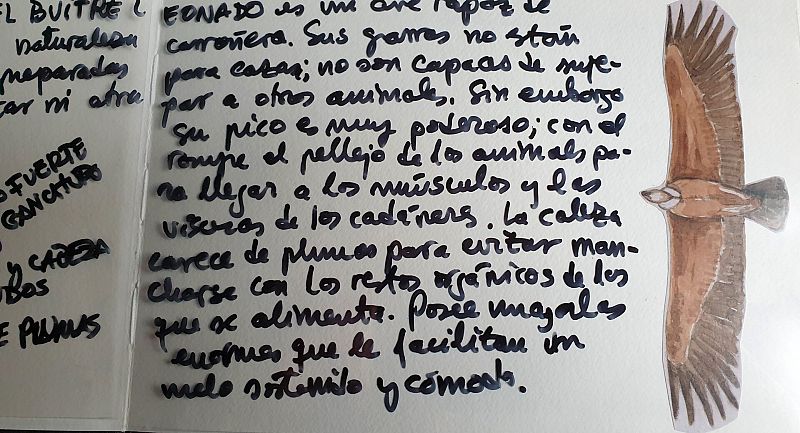 EL BUITRE L
naturaleza
preparadas
ni otra
FUERTE
GANCHUDO
Y CABEZA
E PLUMAS
EONADO es un ave rapaz de
carroñera. Sus garras no están
para cazar; no son capaces de suje-
tar a otros animales. Sin embargo
su pico es muy poderoso; con el
rompe el pellejo de los animales pa-
ra llegar a los músculos y las
vísceras de los cadáveres. La cabeza
carece de plumas para evitar man-
charse con los restos orgánicos de los
que se alimenta. Posee unas alas
enormes que le facilitan un
vuelo sostenido y cómodo.